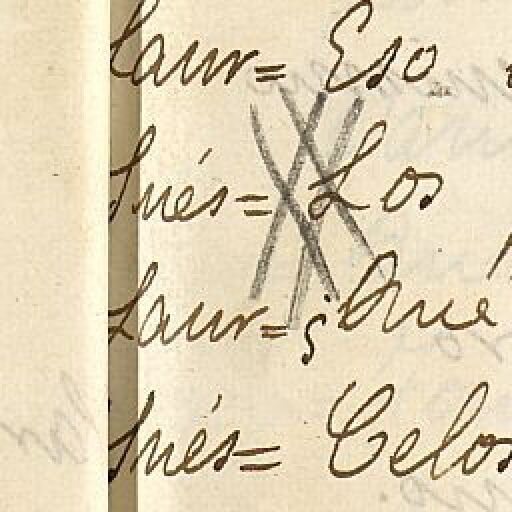 Laur= Eso
Inés= Los
Laur= ¿Qué
Inés= Celos